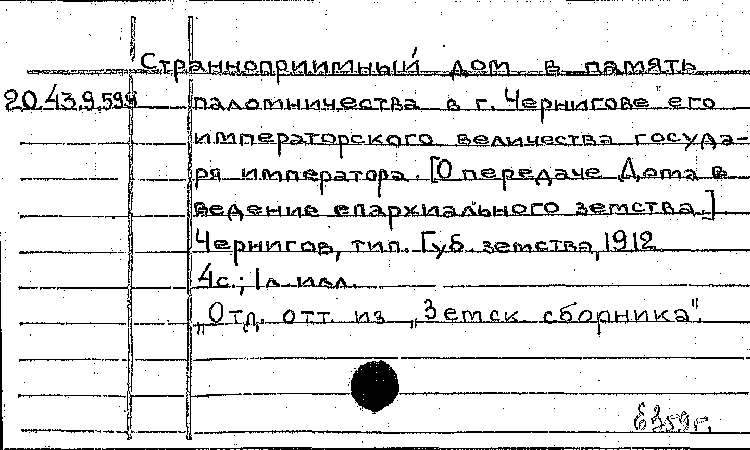 Странноприимный дом в память
20.43.9.599 паломничества в г. Чернигове его
императорского величества госуда-
ря императора. [О передаче Дома в
ведение епархиального земства.]
Чернигов, тип. Губ. земства, 1912
4с.; 1 л. илл.
„Отд. отт. из „Земск. сборника".